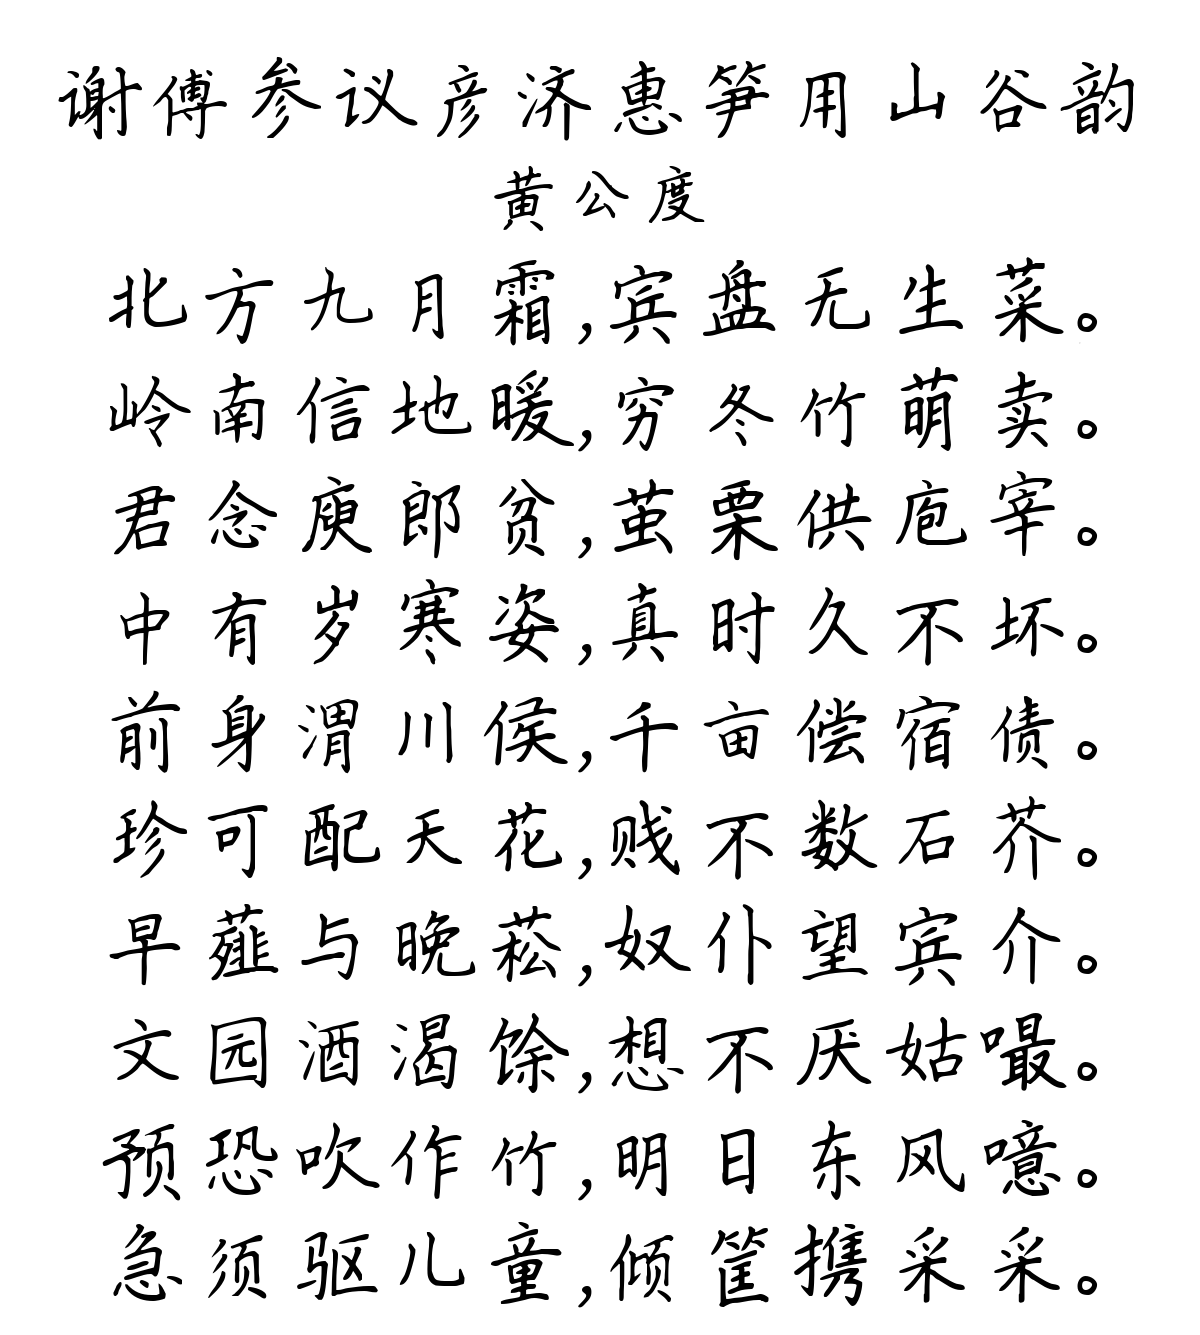 谢傅参议彦济惠笋用山谷韵
黄公度
北方九月霜,宾盘无生菜。
岭南信地暖,穷冬竹萌卖。
君念庾郎贫,茧栗供庖宰。
中有岁寒姿,真时久不坏。
前身渭川侯,千亩偿宿债。
珍可配天花,贱不数石芥。
早薤与晚菘,奴仆望宾介。
文园酒渴馀,想不厌姑嘬。
预恐吹作竹,明日东风噫。
急须驱儿童,倾筐携采采。